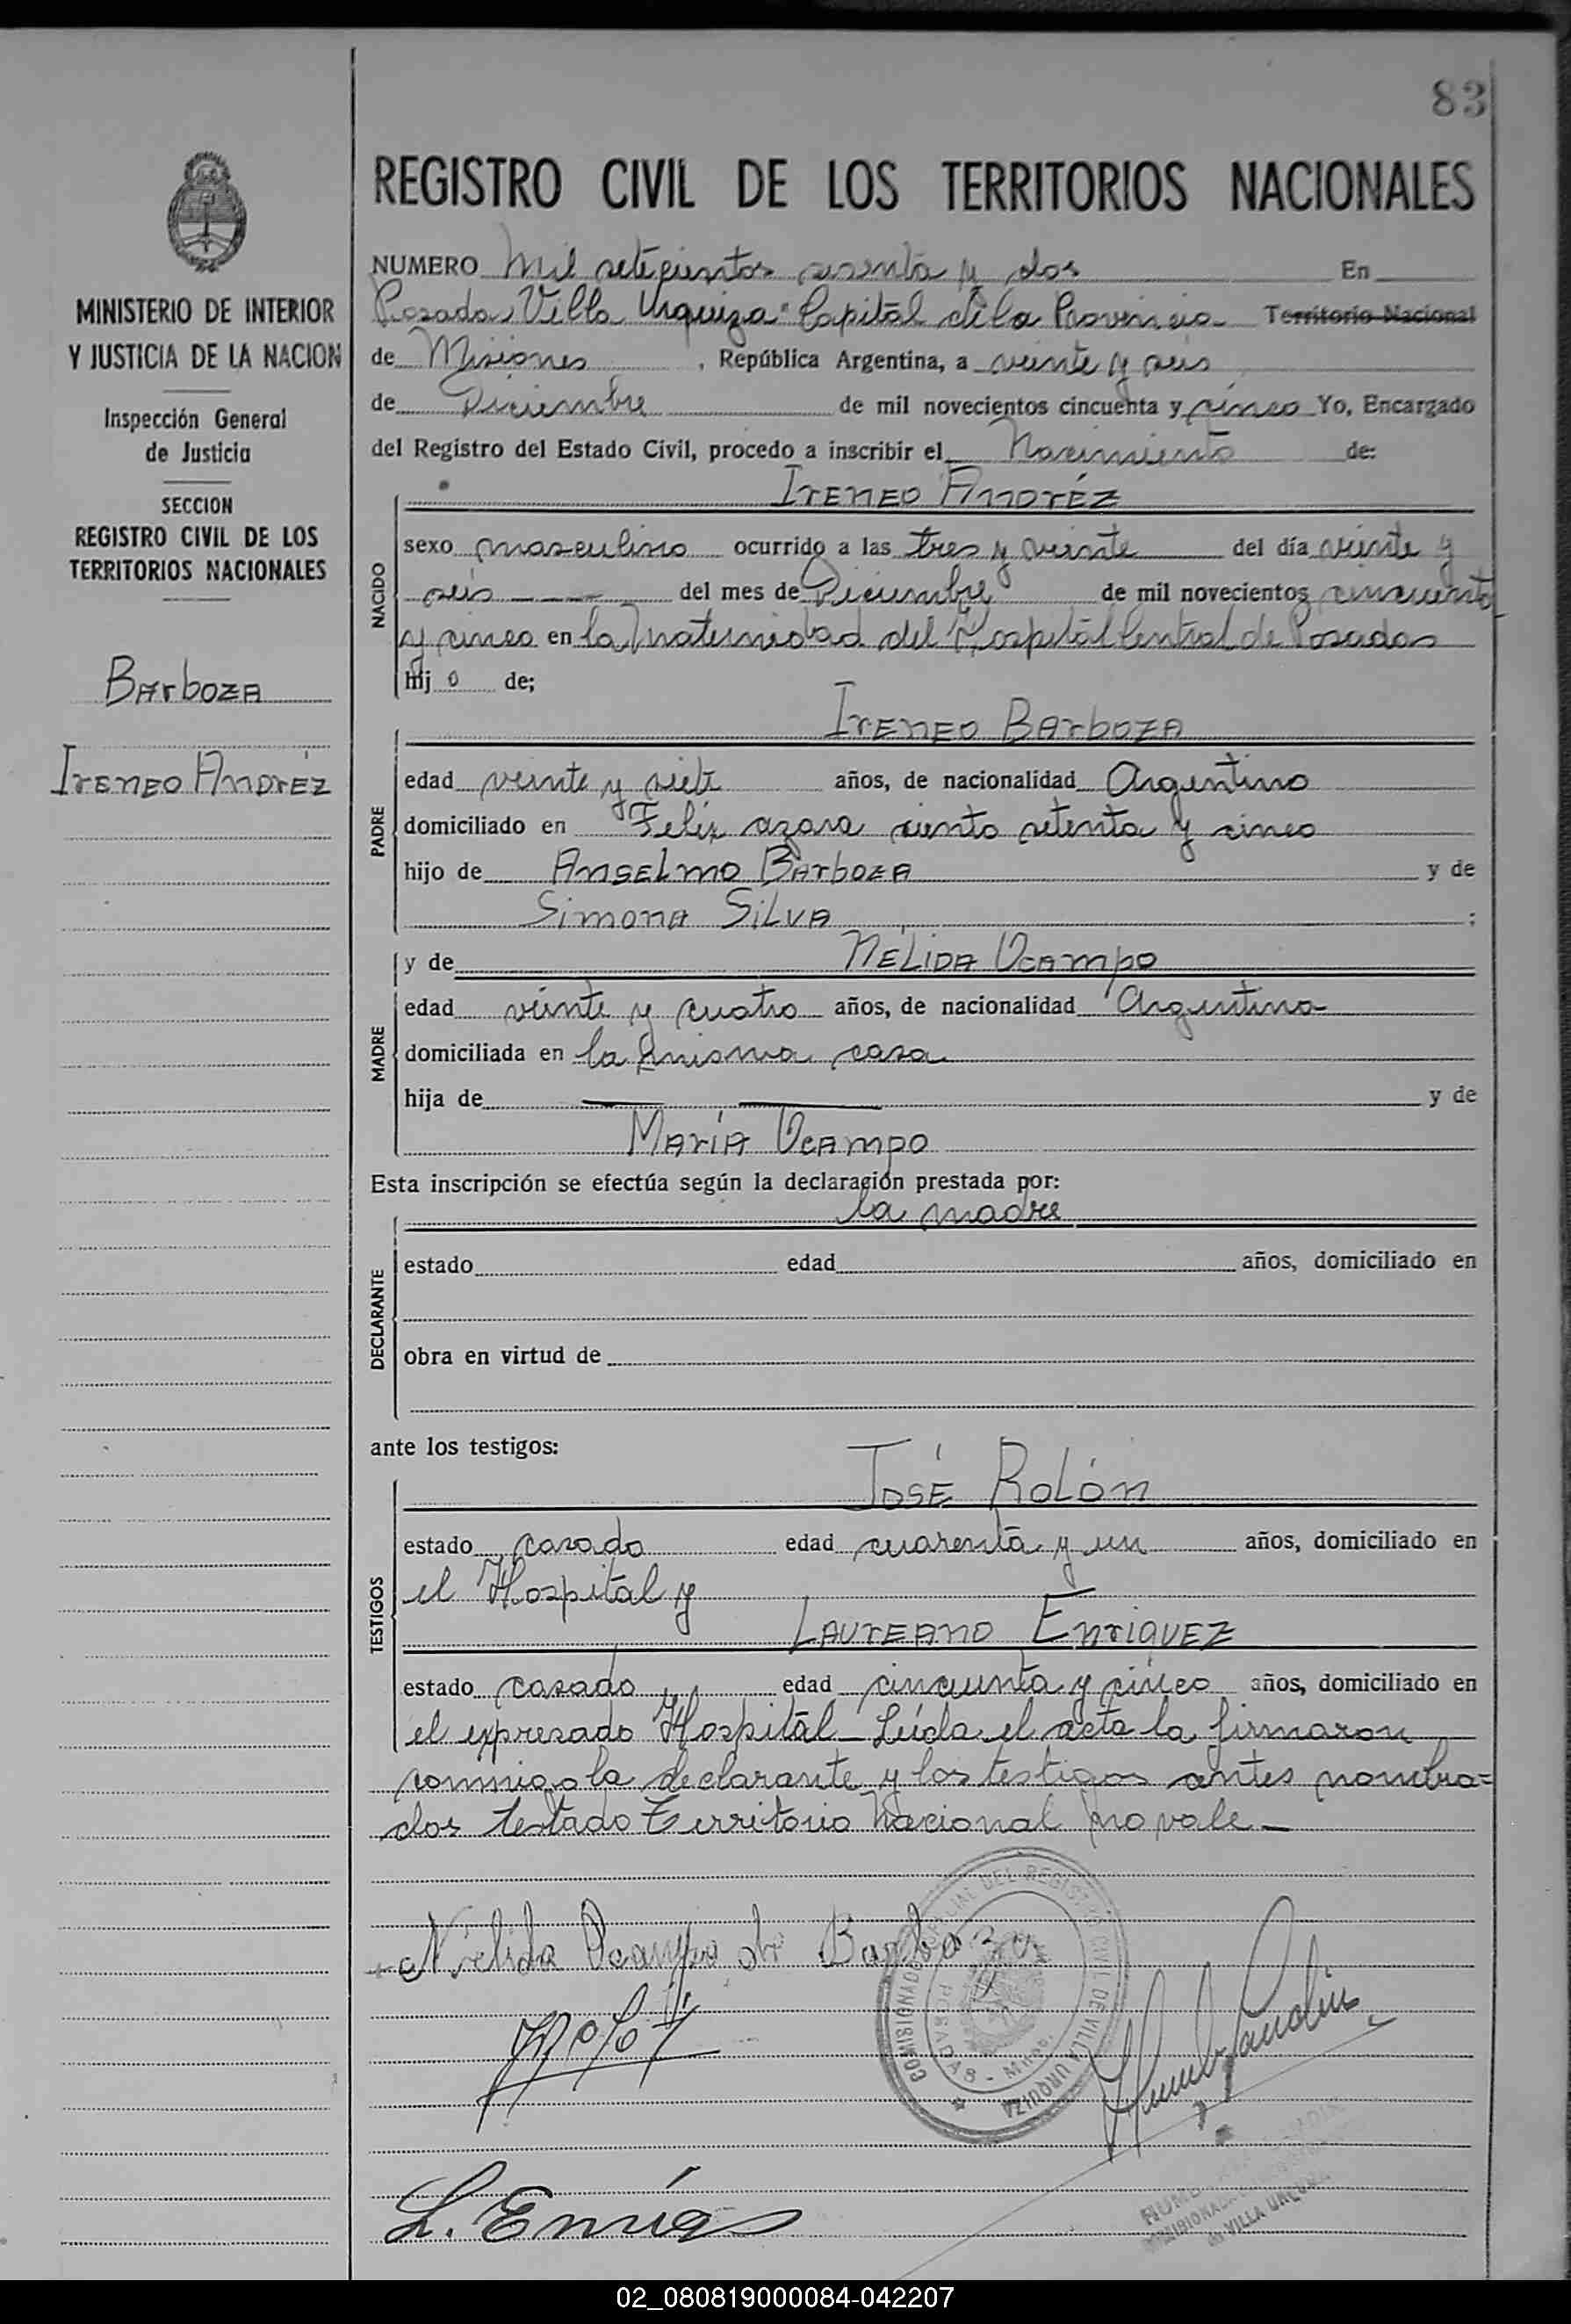 83
REGISTRO CIVIL DE LOS TERRITORIOS NACIONALES
MINISTERIO DE INTERIOR
Y JUSTICIA DE LA NACION
Inspección General
de Justicia
SECCION
REGISTRO CIVIL DE LOS
TERRITORIOS NACIONALES
Barboza
Ireneo Andréz
NUMERO Mil setecientos sesenta y dos En
Posadas Villa Urquiza "Capital de la Provincia Territorio Nacional
de Misiones, República Argentina, a veinte y seis
de Diciembre de mil novecientos cincuenta y cinco Yo, Encargado
del Registro del Estado Civil, procedo a inscribir el Nacimiento de:
Ireneo Andréz
NACIDO
sexo masculino ocurrido a las tres y veinte del día veinte y
seis del mes de Diciembre de mil novecientos cincuenta
y cinco en la Maternidad del Hospital Central de Posadas
hijo de;
Ireneo Barboza
PADRE
edad veinte y siete años, de nacionalidad Argentino
domiciliado en Felix azara ciento setenta y cinco
hijo de Anselmo Barboza y de
Simona Silva ;
y de Nélida Ocampo
MADRE
edad veinte y cuatro años, de nacionalidad Argentina
domiciliada en la misma casa
hija de — — y de
María Ocampo
Esta inscripción se efectúa según la declaración prestada por:
la madre
DECLARANTE
estado edad años, domiciliado en
obra en virtud de
ante los testigos:
José Rolón
TESTIGOS
estado casado edad cuarenta y un años, domiciliado en
el Hospital y
Laureano Enriquez
estado casado edad cincuenta y cinco años, domiciliado en
el expresado Hospital - Leída el acta la firmaron
conmigo la declarante y los testigos antes nombra=
dos testado Territorio Nacional no vale -
Nelida Ocampo de Barboza
COMISIONADO DEL REGISTRO CIVIL DE VILLA URQUIZA
POSADAS - Mnes.
L. Enriqz
de VILLA URQUIZA
02_080819000084-042207